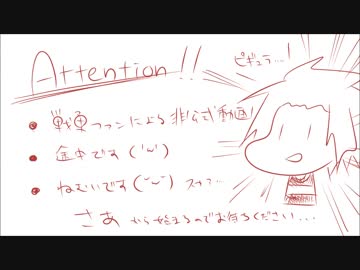 Attention!!
ピギュラ…!
戦勇ファンによる非公式動画!
途中です('ω')
ねむいです(˘ω˘)スヤァ…
さあ から始まるのでお待ちください...